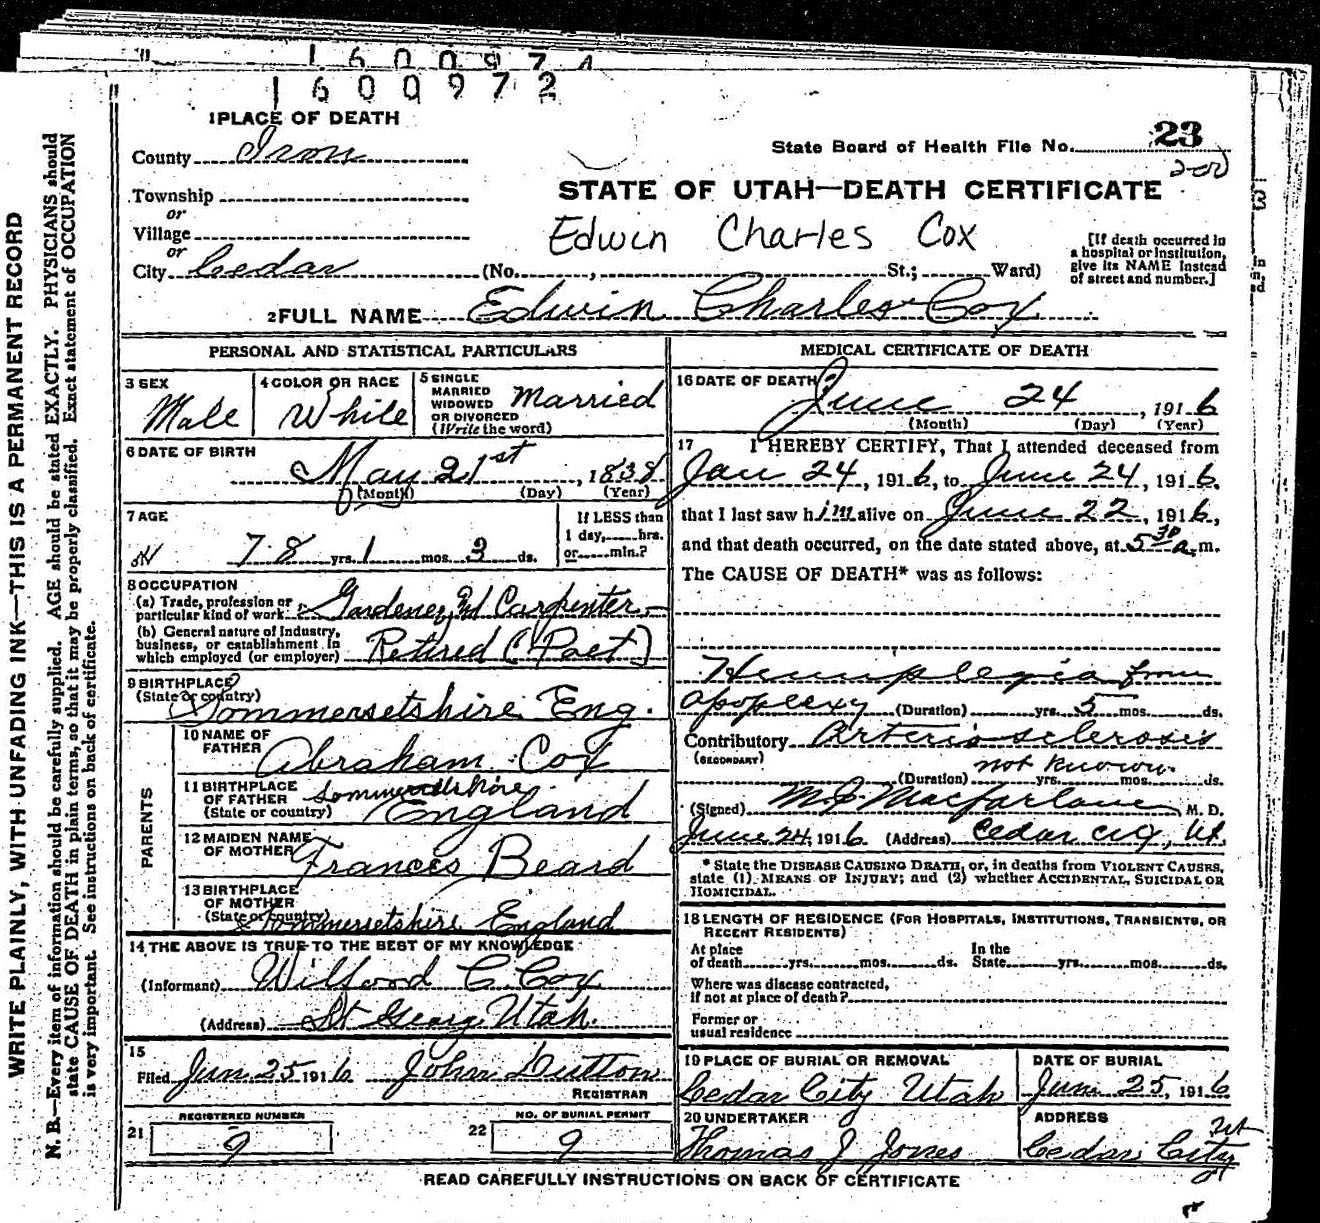 1600974
1600972
1 PLACE OF DEATH
County Iron
State Board of Health File No. 23
200
Township
or
Village
or
City Cedar
STATE OF UTAH—DEATH CERTIFICATE
Edwin Charles Cox
(No. , St.; Ward)
[If death occurred in
a hospital or institution,
give its NAME instead
of street and number.]
2 FULL NAME Edwin Charles Cox
PERSONAL AND STATISTICAL PARTICULARS
3 SEX
Male
4 COLOR OR RACE
White
5 SINGLE
MARRIED
WIDOWED
OR DIVORCED
(Write the word)
Married
6 DATE OF BIRTH
May 21st, 1838
(Month) (Day) (Year)
7 AGE
78 yrs. 1 mos. 3 ds.
If LESS than
1 day, hrs.
or min.?
8 OCCUPATION
(a) Trade, profession or
particular kind of work Gardener, and Carpenter
(b) General nature of industry,
business, or establishment in
which employed (or employer) Retired (Poet)
9 BIRTHPLACE
(State or country)
Sommersetshire Eng.
PARENTS
10 NAME OF
FATHER
Abraham Cox
11 BIRTHPLACE
OF FATHER
(State or country)
Sommersetshire
England
12 MAIDEN NAME
OF MOTHER
Frances Beard
13 BIRTHPLACE
OF MOTHER
(State or country)
Sommersetshire England
14 THE ABOVE IS TRUE TO THE BEST OF MY KNOWLEDGE
(Informant) Wilford C. Cox
(Address) St George Utah.
15
Filed Jun. 25 1916 John Dutton
REGISTRAR
21
REGISTERED NUMBER
9
22
NO. OF BURIAL PERMIT
9
MEDICAL CERTIFICATE OF DEATH
16 DATE OF DEATH
June 24, 1916
(Month) (Day) (Year)
17 I HEREBY CERTIFY, That I attended deceased from
Jan 24, 1916, to June 24, 1916.
that I last saw him alive on June 22, 1916,
and that death occurred, on the date stated above, at 5 30 a.m.
The CAUSE OF DEATH* was as follows:
Hemiplegia from
apoplexy (Duration) yrs. 5 mos. ds.
Contributory Arteriosclerosis
(SECONDARY)
not known.
(Duration) yrs. mos. ds.
(Signed) M J Macfarlane, M. D.
June 24, 1916. (Address) Cedar City, Ut.
* State the DISEASE CAUSING DEATH, or, in deaths from VIOLENT CAUSES,
state (1) MEANS OF INJURY; and (2) whether ACCIDENTAL, SUICIDAL OR
HOMICIDAL.
18 LENGTH OF RESIDENCE (FOR HOSPITALS, INSTITUTIONS, TRANSIENTS, OR
RECENT RESIDENTS)
At place
of death yrs. mos. ds.
In the
State yrs. mos. ds.
Where was disease contracted,
if not at place of death?
Former or
usual residence
19 PLACE OF BURIAL OR REMOVAL
Cedar City Utah
DATE OF BURIAL
June 25, 1916
20 UNDERTAKER
Thomas J Jones
ADDRESS
Cedar City
Ut
READ CAREFULLY INSTRUCTIONS ON BACK OF CERTIFICATE
WRITE PLAINLY, WITH UNFADING INK—THIS IS A PERMANENT RECORD
N. B.—Every item of information should be carefully supplied. AGE should be stated EXACTLY. PHYSICIANS should
state CAUSE OF DEATH in plain terms, so that it may be properly classified. Exact statement of OCCUPATION
is very important. See instructions on back of certificate.